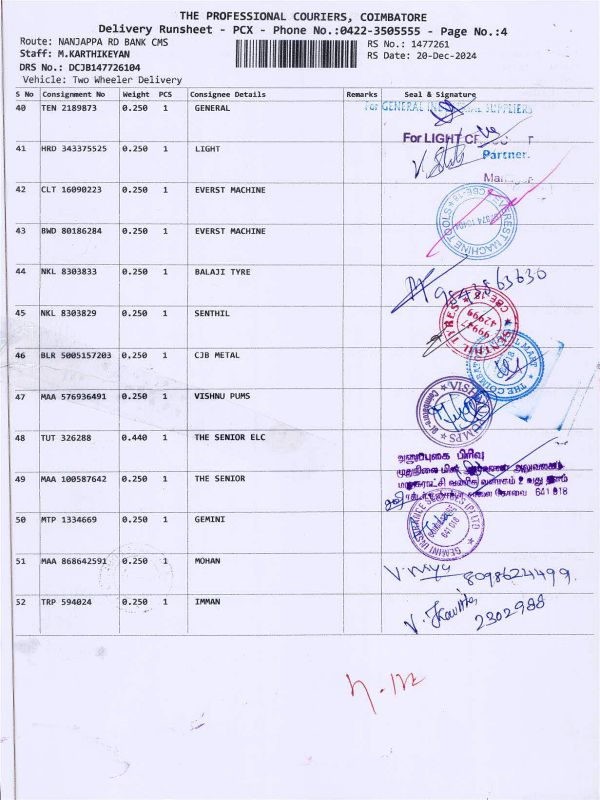 THE PROFESSIONAL COURIERS, COIMBATORE
Delivery Runsheet - PCX - Phone No.:0422-3505555 - Page No.:4
Route: NANJAPPA RD BANK CMS
RS No.: 1477261
Staff: M.KARTHIKEYAN
RS Date: 20-Dec-2024
DRS No.: DCJB147726104
Vehicle: Two Wheeler Delivery
S No Consignment No Weight PCS Consignee Details Remarks Seal & Signature
40 TEN 2189873 0.250 1 GENERAL
For GENERAL SUPPLIERS
For LIGHT
41 HRD 343375525 0.250 1 LIGHT
Partner.
Manager
42 CLT 16090223 0.250 1 EVERST MACHINE
43 BWD 80186284 0.250 1 EVERST MACHINE
44 NKL 8303833 0.250 1 BALAJI TYRE
45 NKL 8303829 0.250 1 SENTHIL
SENTHIL TYRES
CBE-18
46 BLR 5005157203 0.250 1 CJB METAL
47 MAA 576936491 0.250 1 VISHNU PUMS
48 TUT 326288 0.440 1 THE SENIOR ELC
அனுப்புகை பிரிவு
49 MAA 100587642 0.250 1 THE SENIOR
641 018
50 MTP 1334669 0.250 1 GEMINI
GEMINI INSURANCE SERVICES (P) LTD
641 018
51 MAA 868642591 0.250 1 MOHAN
8098624499.
52 TRP 594024 0.250 1 IMMAN
V. Kavitha
2302988